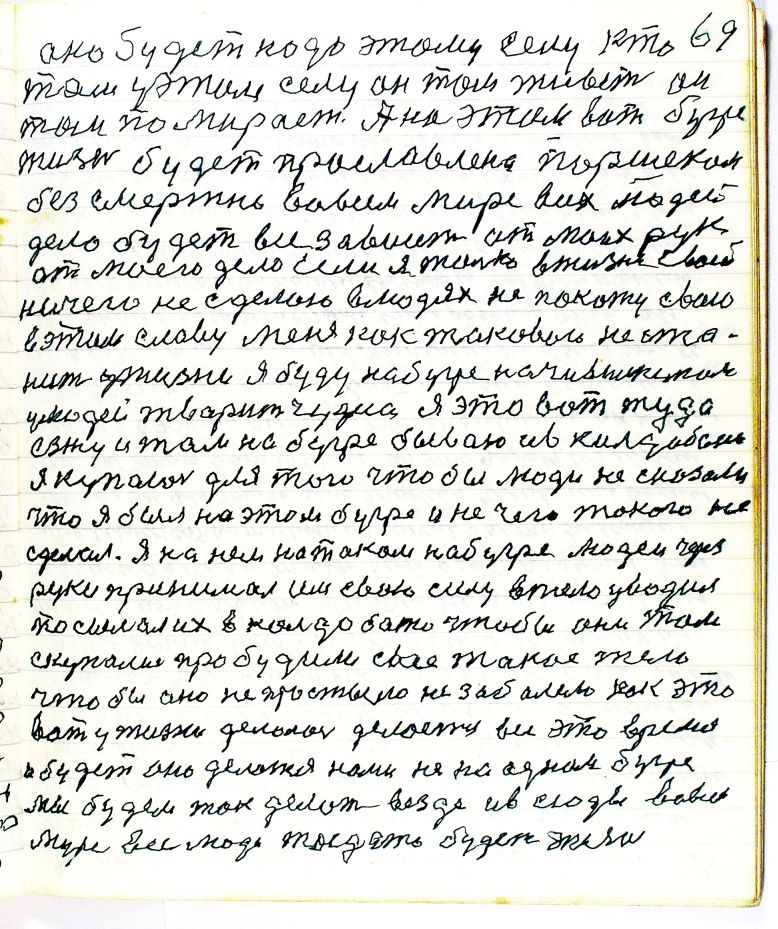 69
ано будет надо этому селу кто
там у этом селу он там живет он
там помирает. А на этом вот бугре
жизн будет прославлена Паршеком
без смертнь вовсем мире всих людей
дело будет все зависит от маих рук
от моего дело Если я толко в жизне своей
ничего не сделаю в людях не покожу свою
в этим славу меня как таковоло не ста-
нит у жизни я буду на бугре начивником
у людей тварит чудиса я это вот туда
езжу и там на бугре бываю и в калдобань
я купалсь для того что бы люди не сказали
что я был на этом бугре и не чего такого не
сделал. Я на нем на таком на бугре людей через
руки принимал им свою силу в тело уводил
посылал их в колдобано чтобы они там
скупалис пробудили свае такое тело
что бы ано не простыло не заболело как это
вот у жизни делолос делаетця все это время
будет оно делатся нами не на одном бугре
мы будем так делат везде и в сюды вовсем
мире все люди тогда будет жизн